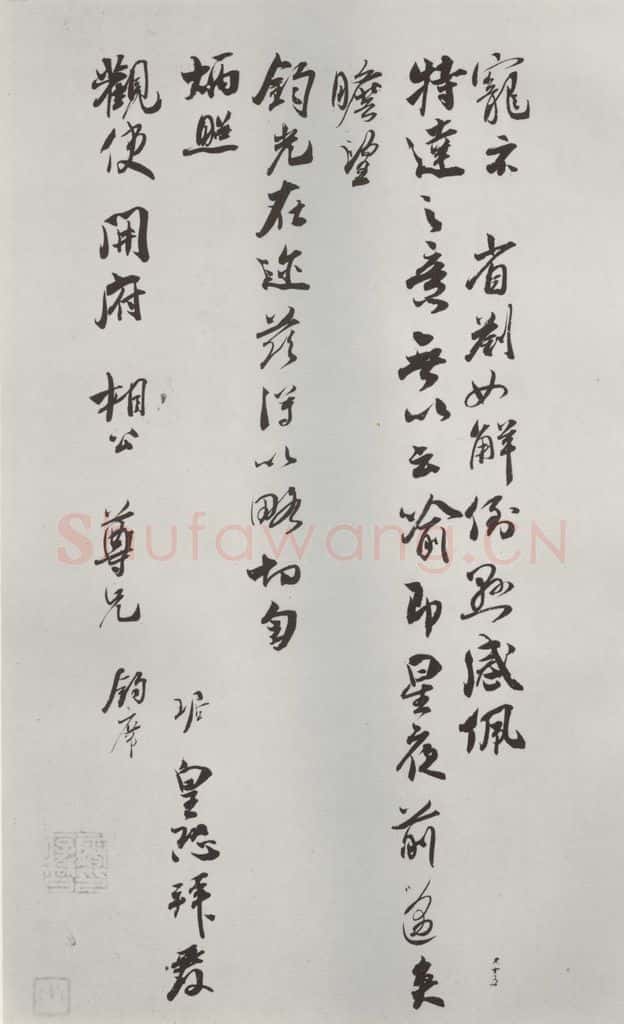 寵示 省劄如解倒懸感佩
特達之意無以云喻即星夜前邁矣
瞻望
鈞光在邇茲得以略切匄
炳照
琚 皇恐拜覆
觀使 開府 相公 尊兄 鈞席
Shufawang.CN